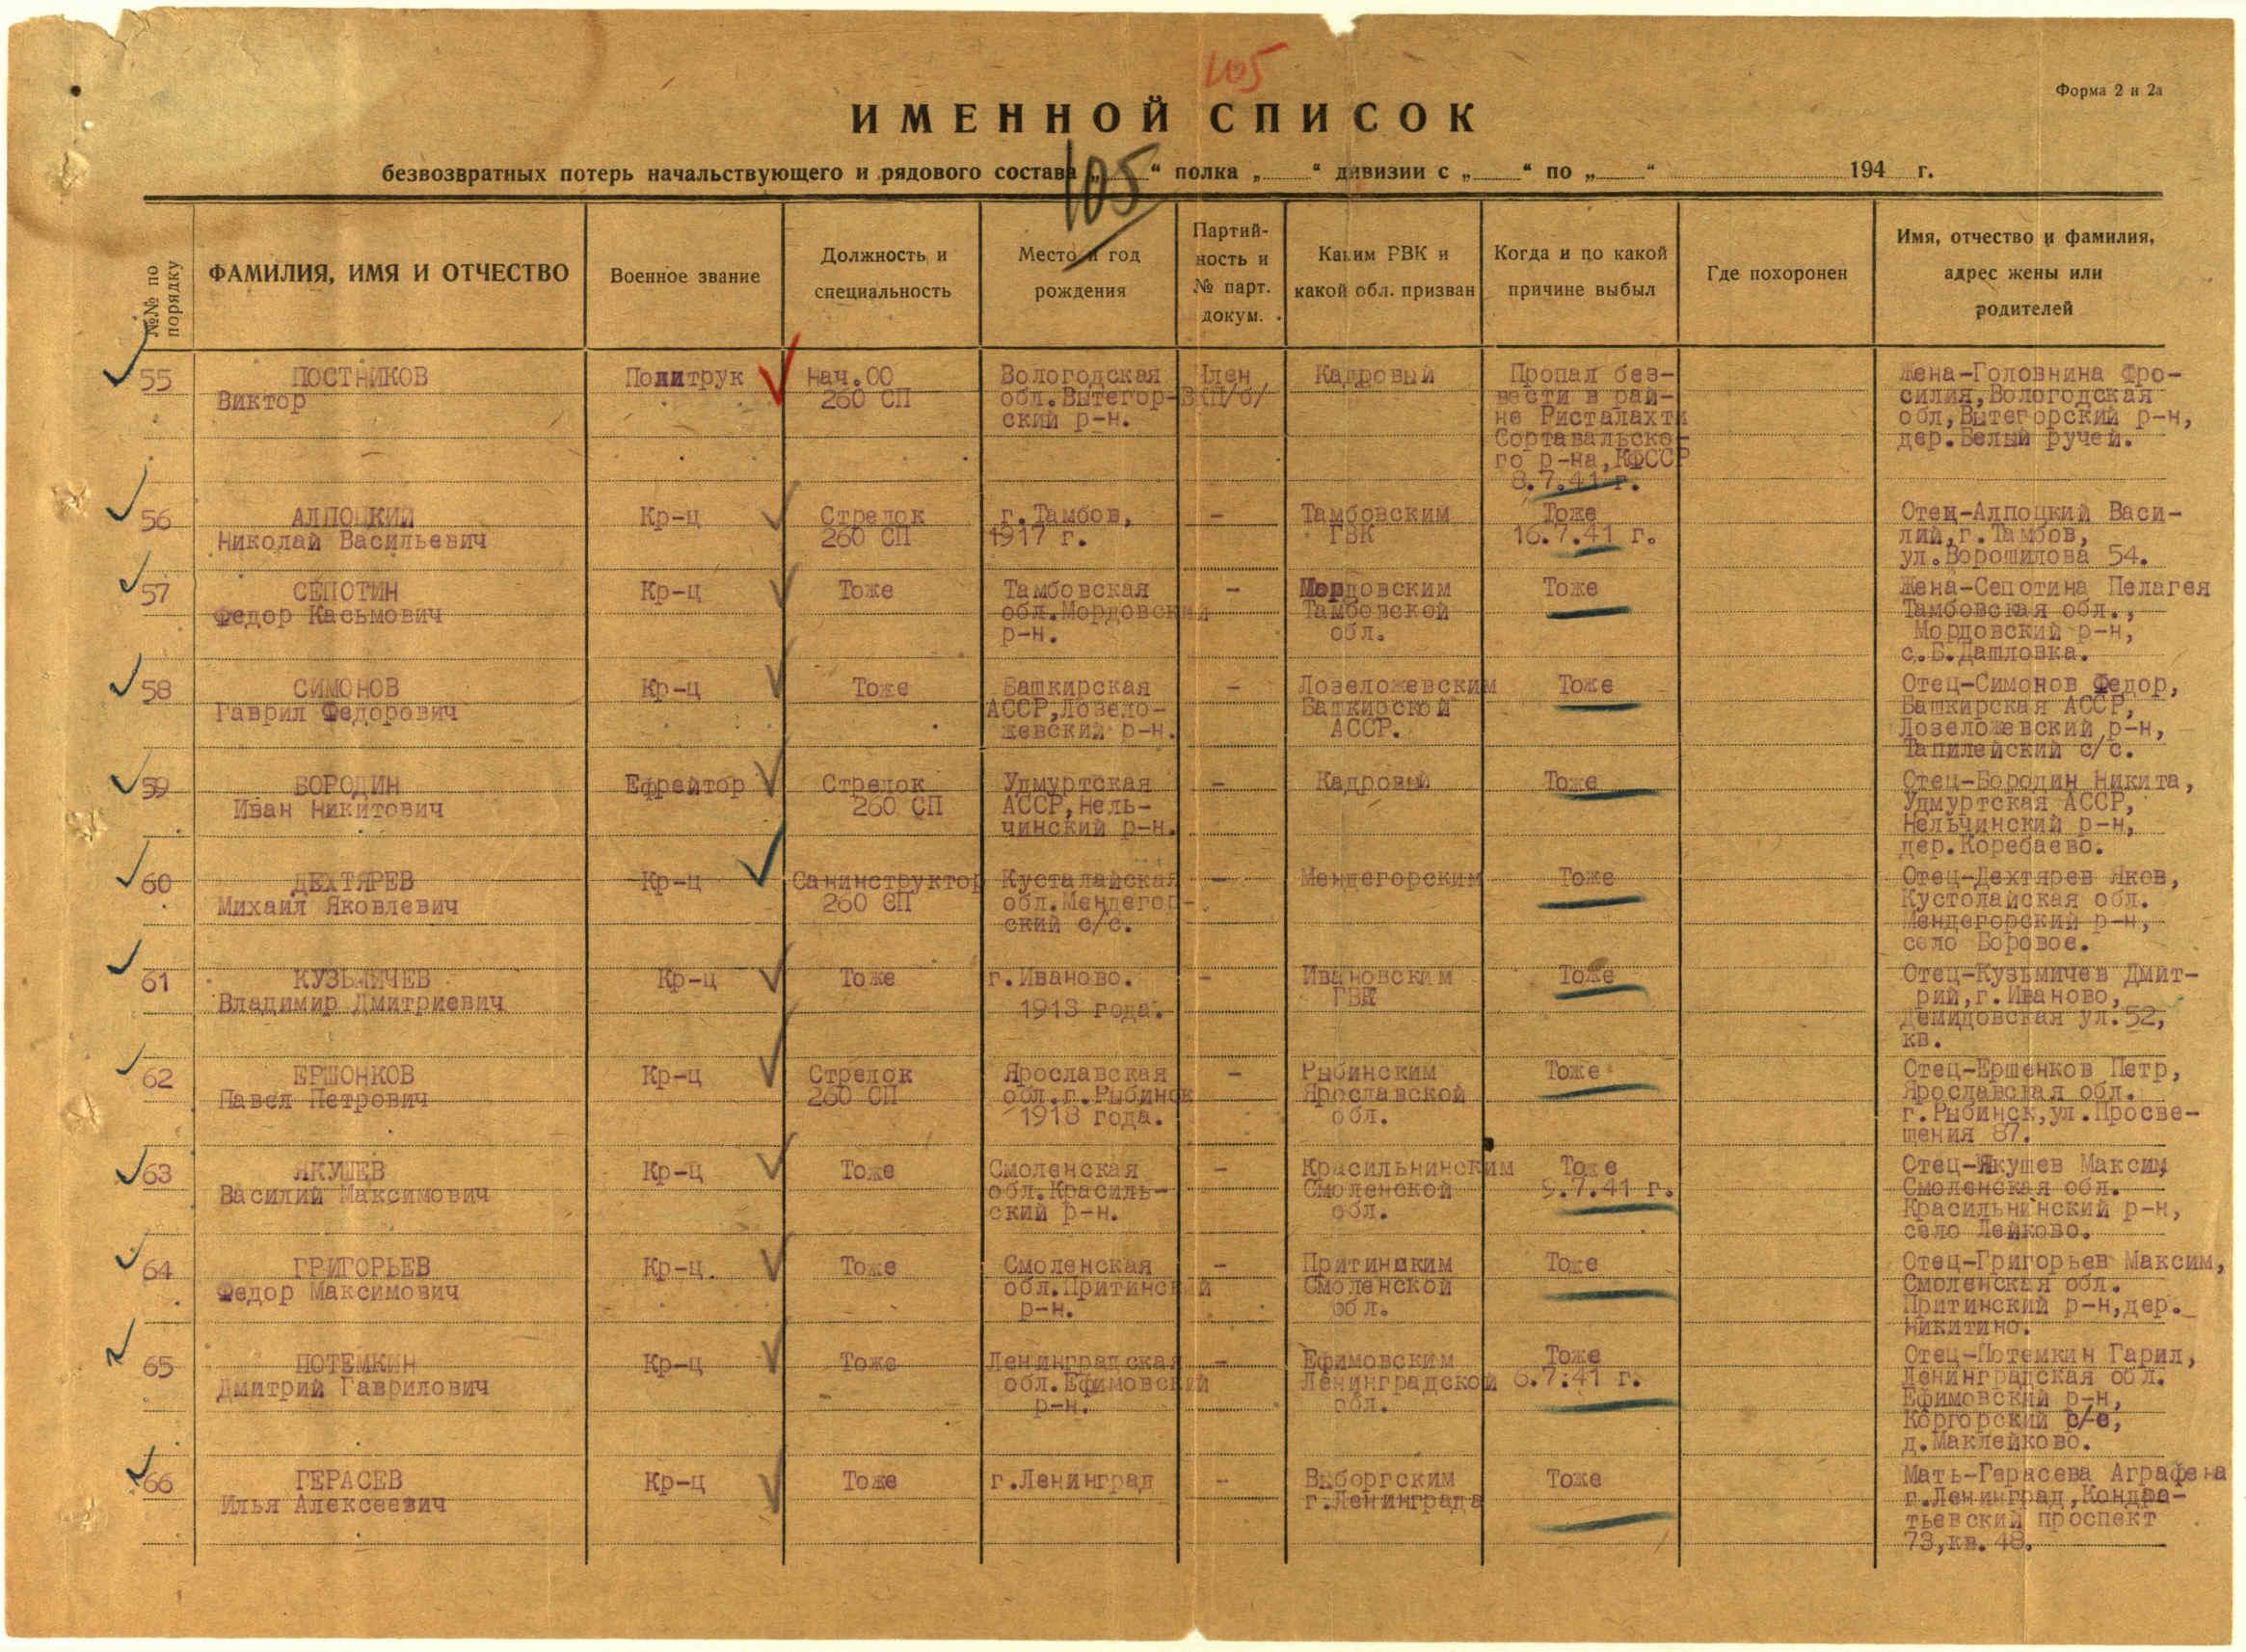 105
Форма 2 и 2а
ИМЕННОЙ СПИСОК
безвозвратных потерь начальствующего и рядового состава „ “ полка „ “ дивизии с „ “ по „ “ 194 г.
105
№№ по порядку
ФАМИЛИЯ, ИМЯ И ОТЧЕСТВО
Военное звание
Должность и
специальность
Место и год
рождения
Партий-
ность и
№ парт.
докум.
Каким РВК и
какой обл. призван
Когда и по какой
причине выбыл
Где похоронен
Имя, отчество и фамилия,
адрес жены или
родителей
55
ПОСТНИКОВ
Виктор
Политрук
Нач.ОО
260 СП
Вологодская
обл.Вытегор-
ский р-н.
Член
ВКП/б/
Кадровый
Пропал без-
вести в рай-
не Ристалахти
Сортавальско-
го р-на,КФССР
8.7.41 г.
Жена-Головнина Фро-
силия,Вологодская
обл,Вытегорский р-н,
дер.Белый ручей.
56
АЛПОЦКИЙ
Николай Васильевич
Кр-ц
Стрелок
260 СП
г.Тамбов,
1917 г.
-
Тамбовским
ГВК
Тоже
16.7.41 г.
Отец-Алпоцкий Васи-
лий,г.Тамбов,
ул.Ворошилова 54.
57
СЕПОТИН
Федор Касьмович
Кр-ц
Тоже
Тамбовская
обл.Мордовский
р-н.
-
Мордовским
Тамбовской
обл.
Тоже
Жена-Сепотина Пелагея
Тамбовская обл.,
Мордовский р-н,
с.Б.Дашловка.
58
СИМОНОВ
Гаврил Федорович
Кр-ц
Тоже
Башкирская
АССР,Лозело-
жевский р-н.
-
Лозеложевским
Башкирской
АССР.
Тоже
Отец-Симонов Федор,
Башкирская АССР,
Лозеложевский р-н,
Тапилейский с/с.
59
БОРОДИН
Иван Никитович
Ефрейтор
Стрелок
260 СП
Удмуртская
АССР,Нель-
чинский р-н.
-
Кадровый
Тоже
Отец-Бородин Никита,
Удмуртская АССР,
Нельчинский р-н,
дер.Коребаево.
60
ДЕХТЯРЕВ
Михаил Яковлевич
Кр-ц
Санинструктор
260 СП
Кусталайская
обл.Мендегор-
ский с/с.
-
Мендегорским
Тоже
Отец-Дехтярев Яков,
Кустолайская обл.
Мендегорский р-н,
село Боровое.
61
КУЗЬМИЧЕВ
Владимир Дмитриевич
Кр-ц
Тоже
г.Иваново.
1913 года.
-
Ивановским
ГВК
Тоже
Отец-Кузьмичев Дмит-
рий,г.Иваново,
Демидовская ул.52,
кв.
62
ЕРШОНКОВ
Павел Петрович
Кр-ц
Стрелок
260 СП
Ярославская
обл.г.Рыбинск
1918 года.
-
Рыбинским
Ярославской
обл.
Тоже
Отец-Ершенков Петр,
Ярославская обл.
г.Рыбинск,ул.Просве-
щения 87.
63
ЯКУШЕВ
Василий Максимович
Кр-ц
Тоже
Смоленская
обл.Красиль-
ский р-н.
-
Красильнинским
Смоленской
обл.
Тоже
9.7.41 г.
Отец-Якушев Максим
Смоленская обл.
Красильнинский р-н,
село Лейково.
64
ГРИГОРЬЕВ
Федор Максимович
Кр-ц.
Тоже
Смоленская
обл.Притинский
р-н.
-
Притинским
Смоленской
обл.
Тоже
Отец-Григорьев Максим,
Смоленская обл.
Притинский р-н,дер.
Никитино.
65
ПОТЕМКИН
Дмитрий Гаврилович
Кр-ц
Тоже
Ленинградская
обл.Ефимовский
р-н.
-
Ефимовским
Ленинградской
обл.
Тоже
6.7.41 г.
Отец-Потемкин Гарил,
Ленинградская обл.
Ефимовский р-н,
Коргорский с/с,
д.Маклейково.
66
ГЕРАСЕВ
Илья Алексеевич
Кр-ц
Тоже
г.Ленинград
-
Выборгским
г.Ленинграда
Тоже
Мать-Герасева Аграфена
г.Ленинград,Кондра-
тьевский проспект
73,кв.48.